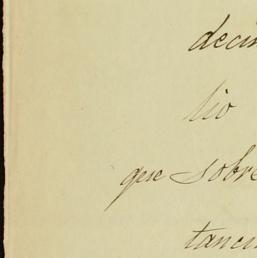 decim
lio
que sobre
tancia